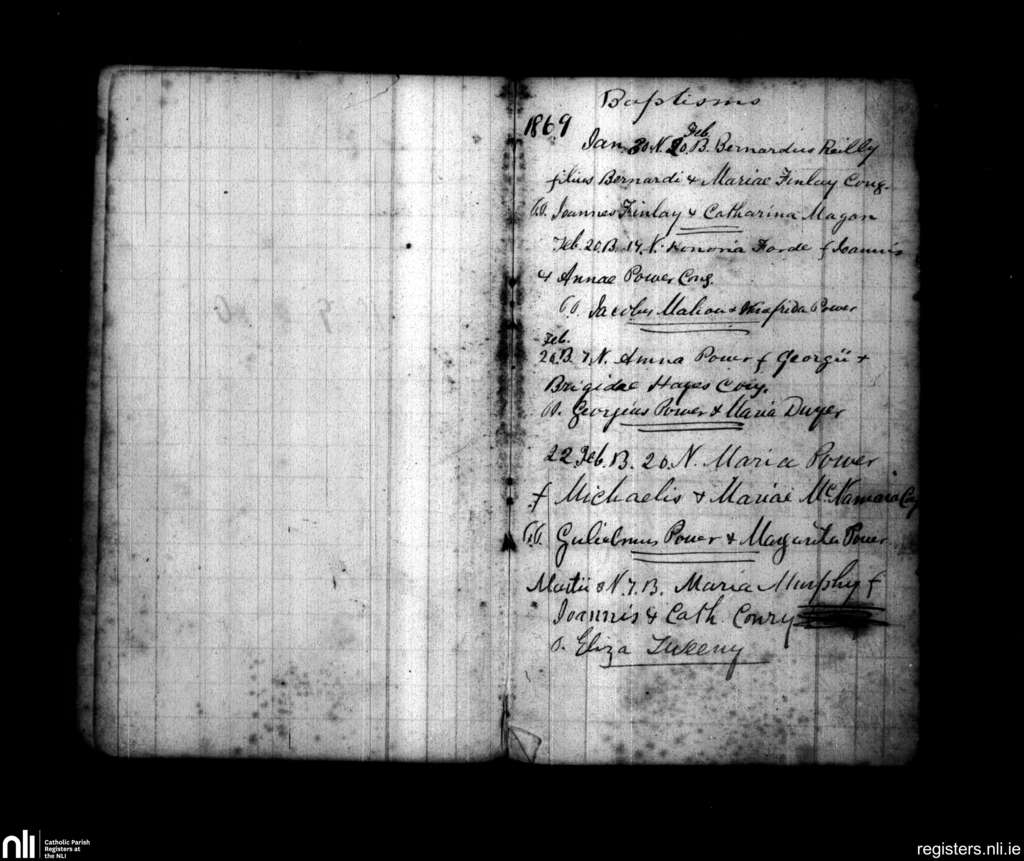 Baptisms
1869
Feb
Jan. 30. N. 20. B. Bernardus Reilly
filius Bernardi & Mariae Finlay Cong.
SS. Joannes Finlay & Catharina Magan
Feb. 20. B. 14. N. Honoria Forde f Joannis
& Annae Power Cong.
SS. Jacobus Mahon & Winifrida Power
Feb.
20. B. 7. N. Anna Power f Georgii &
Brigidae Hayes Conj.
SS. Georgius Power & Maria Dwyer
22 Feb. B. 20. N. Maria Power
f Michaelis & Mariae McNamara
SS. Gulielmus Power & Margarita Power
Martii N. 7. B. Maria Murphy f
Joannis & Cath. Conry
S. Eliza
nli
Catholic Parish
Registers at
the NLI
registers.nli.ie